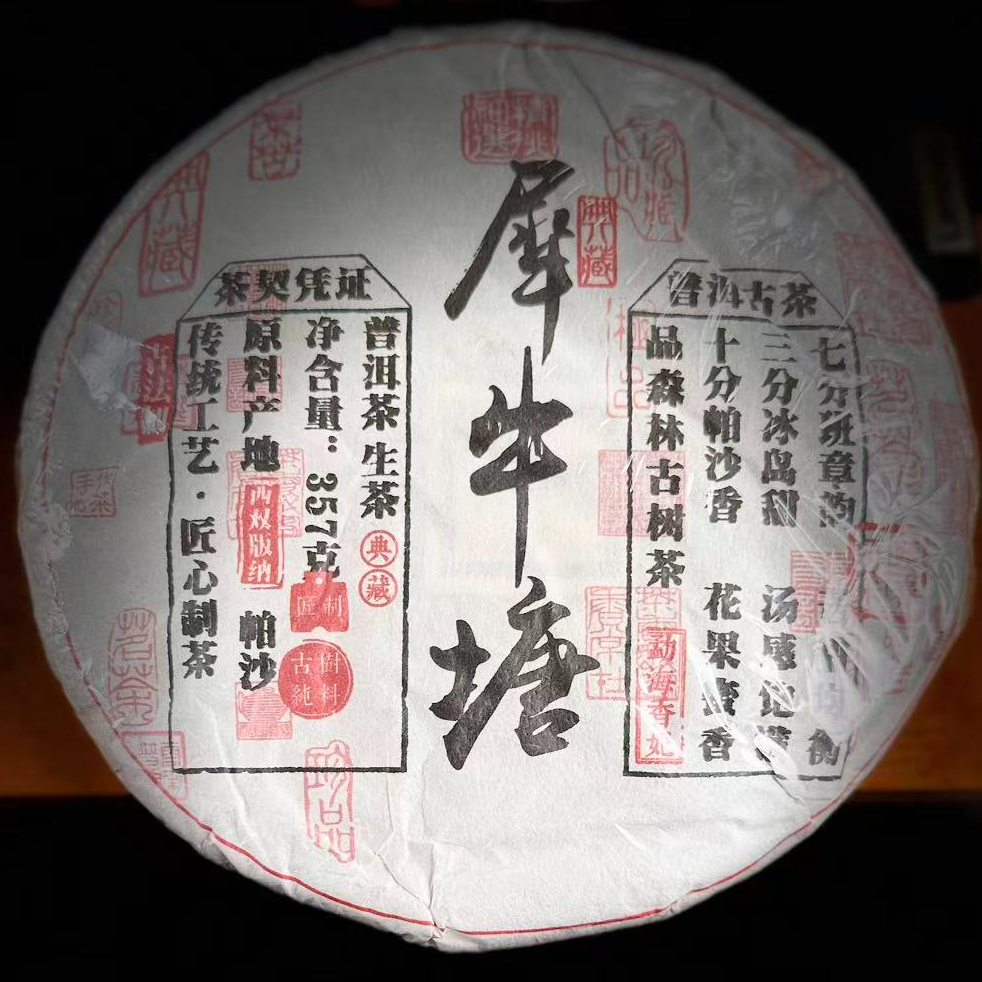 犀牛塘
茶契凭证
普洱茶 生茶
典藏
净含量：357克
匠制
古樹純料
原料产地
西双版纳
帕沙
传统工艺·匠心制茶
普洱古茶
七分班章韵
三分冰岛甜 汤感饱满
十分帕沙香 花果蜜香
品森林古树茶
勐海香妃
典藏
典藏
珍藏
古法
珍品